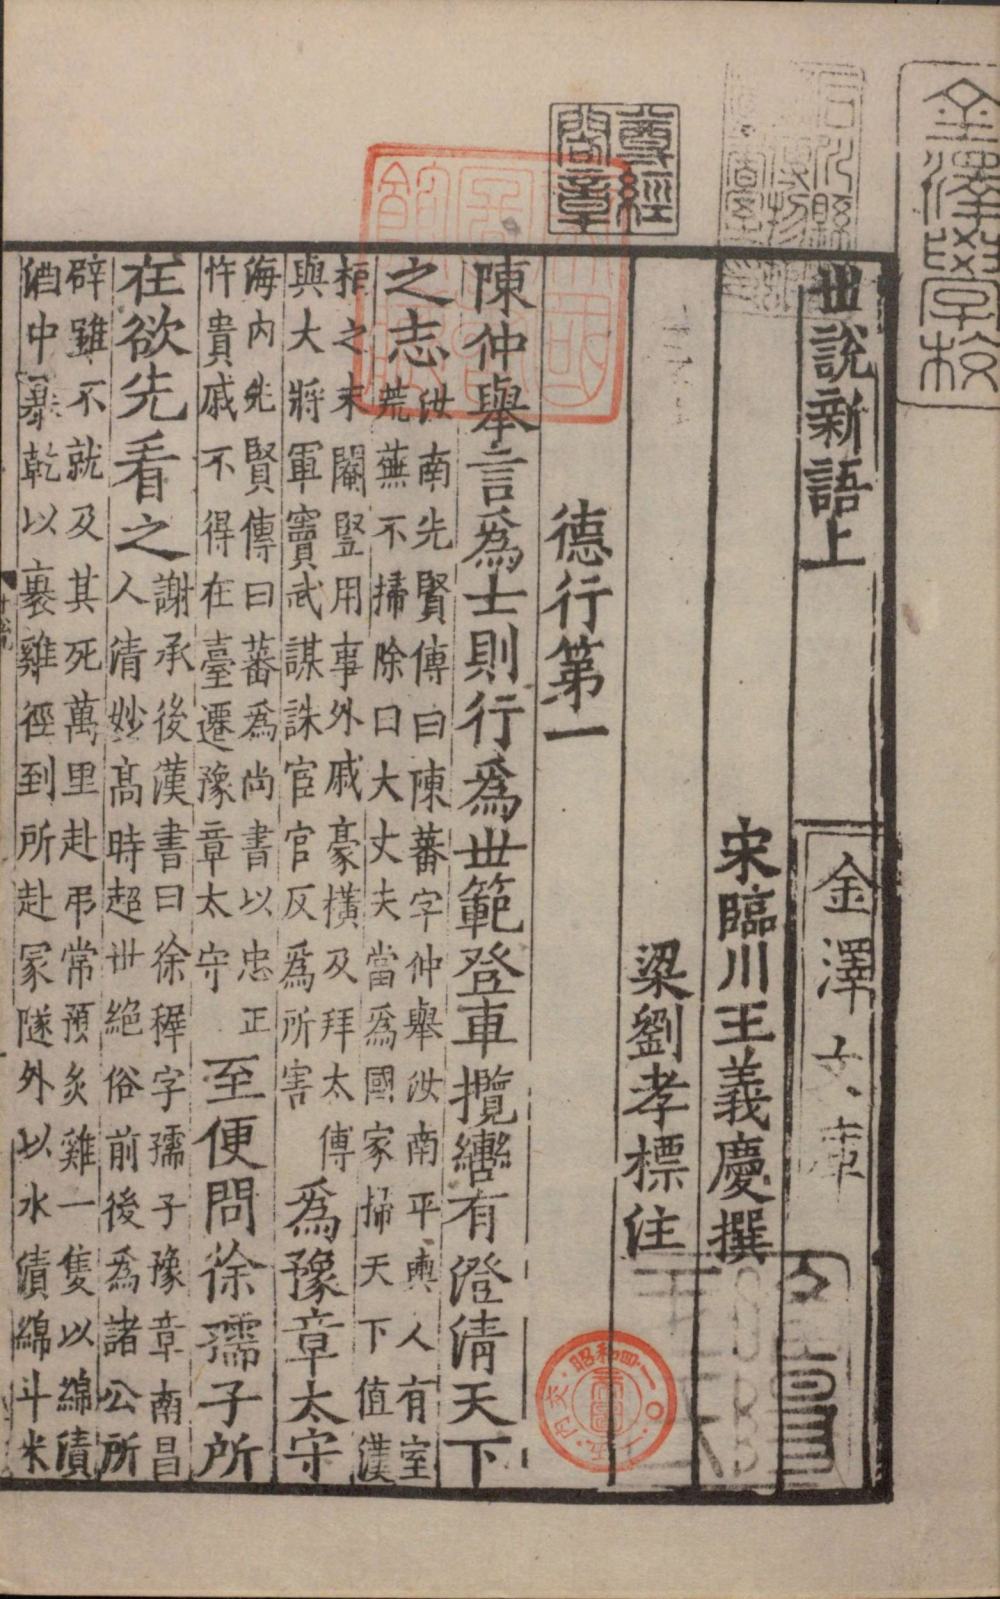 世說新語上
宋臨川王義慶撰
梁劉孝標注
德行第一
陳仲舉言爲士則行爲世範登車攬轡有澄清天下
之志
汝南先賢傳曰陳蕃字仲舉汝南平輿人有室
荒蕪不掃除曰大丈夫當爲國家掃天下值漢
桓之末閹豎用事外戚豪橫及拜太傅
與大將軍竇武謀誅宦官反爲所害
爲豫章太守
海內先賢傳曰蕃爲尚書以忠正
忤貴戚不得在臺遷豫章太守
至便問徐孺子所
在欲先看之
謝承後漢書曰徐穉字孺子豫章南昌
人清妙高時超世絕俗前後爲諸公所
辟雖不就及其死萬里赴弔常預炙雞一隻以綿漬
酒中暴乾以裹雞徑到所赴冢隧外以水漬綿斗米
金澤文庫
金澤學校
尊經閣章
昭和四·一〇·一五·內交